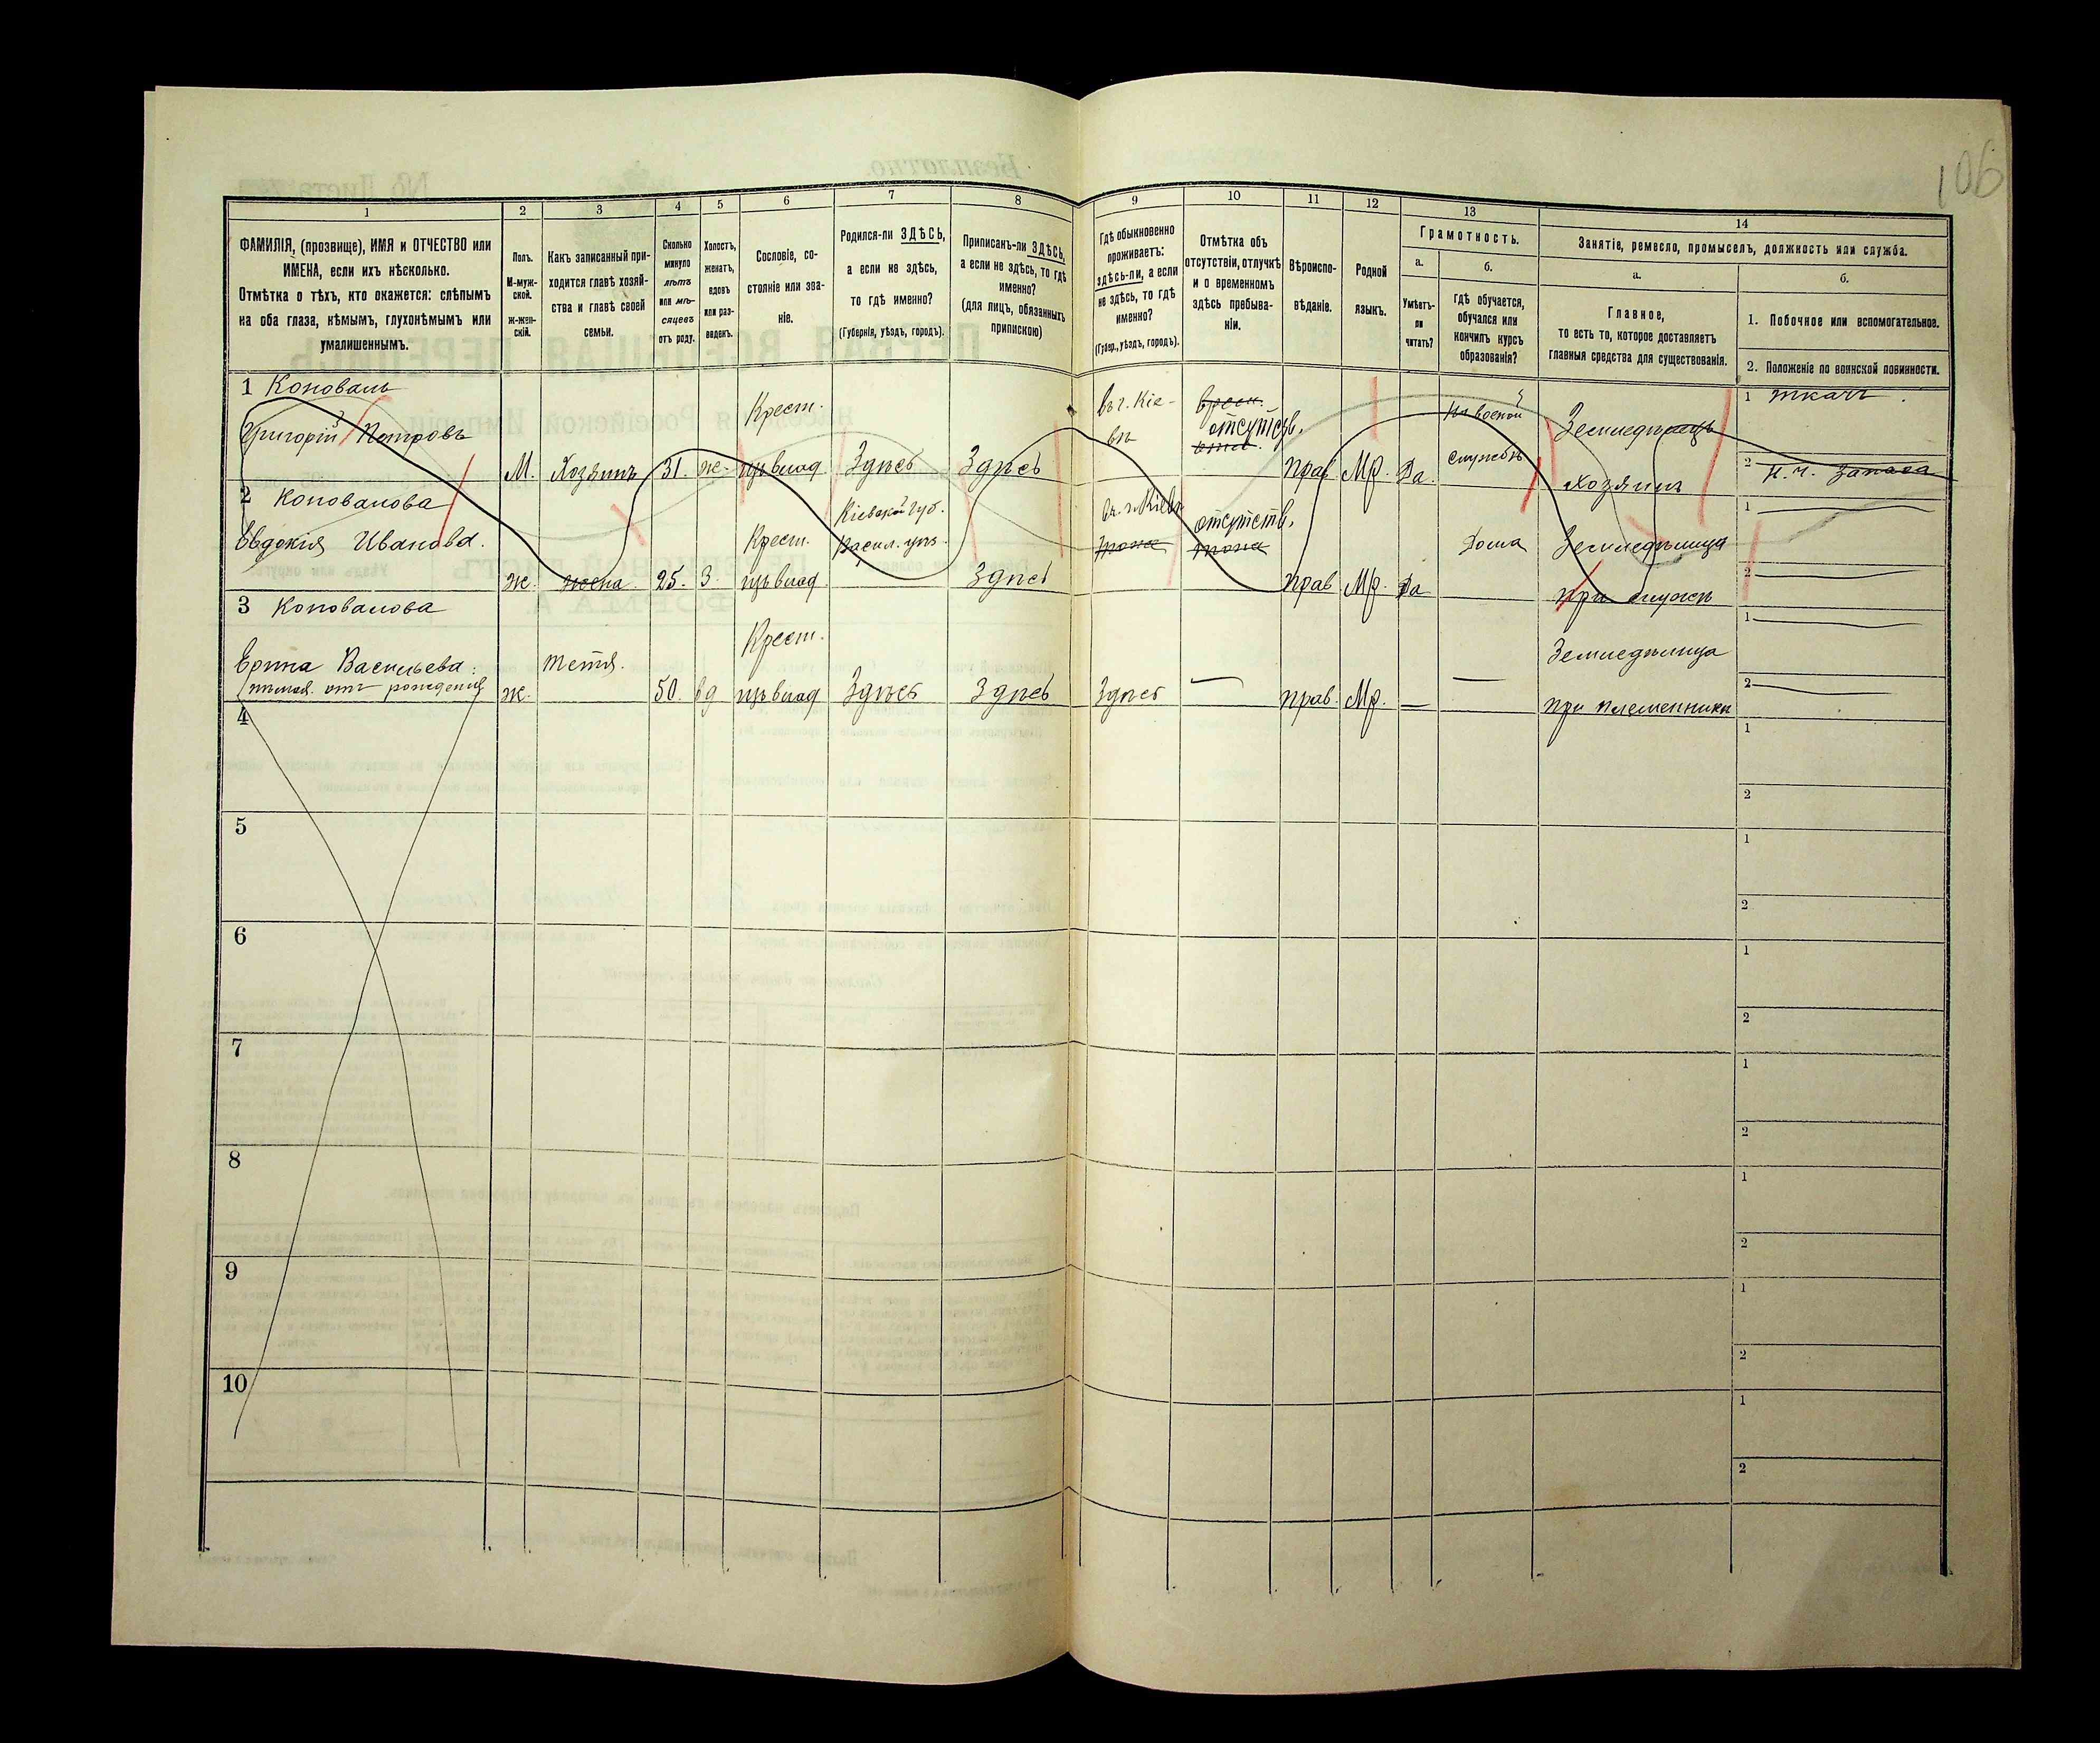 106
1
2
3
4
5
6
7
8
9
10
11
12
13
14
ФАМИЛІЯ, (прозвище), ИМЯ и ОТЧЕСТВО или
ИМЕНА, если ихъ нѣсколько.
Отмѣтка о тѣхъ, кто окажется: слѣпымъ
на оба глаза, нѣмымъ, глухонѣмымъ или
умалишеннымъ.
Полъ.
М-муж-
ской.
Ж-жен-
скій.
Какъ записанный при-
ходится главѣ хозяй-
ства и главѣ своей
семьи.
Сколько
минуло
лѣтъ
или мѣ-
сяцевъ
отъ роду.
Холостъ,
женатъ,
вдовъ
или раз-
веденъ.
Сословіе, со-
стояніе или зва-
ніе.
Родился-ли ЗДѢСЬ,
а если не здѣсь,
то гдѣ именно?
(Губернія, уѣздъ, городъ).
Приписанъ-ли ЗДѢСЬ,
а если не здѣсь, то гдѣ
именно?
(для лицъ, обязанныхъ
припискою)
Гдѣ обыкновенно
проживаетъ:
здѣсь-ли, а если
не здѣсь, то гдѣ
именно?
(Губер., уѣздъ, городъ).
Отмѣтка объ
отсутствіи, отлучкѣ
и о временномъ
здѣсь пребыва-
ніи.
Вѣроиспо-
вѣданіе.
Родной
языкъ.
Грамотность.
а.
Умѣетъ-
ли
читать?
б.
гдѣ обучается,
обучался или
кончилъ курсъ
образованія?
Занятіе, ремесло, промыселъ, должность или служба.
а.
Главное,
то есть то, которое доставляетъ
главныя средства для существованія.
б.
1. Побочное или вспомогательное.
2. Положеніе по воинской повинности.
1 Коноваль
Григорій Петровъ
М.
Хозяинъ
31.
ж.
Крест.
изъ влад.
Здѣсь
Здѣсь
въ г. Кіе-
вѣ
врем.
отсутств.
прав.
Мр.
Да.
въ воєнной
службѣ
Земледѣлецъ
хозяинъ
1 ткачъ.
2 н. ч. запаса
2 Коновалова
Евдокія Иванова.
ж.
жена
25.
З.
Крест.
изъ влад.
Кіевской губ.
Васил. уѣз.
Здѣсь
въ г. Кіевѣ
тоже
отсутств.
тоже
прав.
Мр.
Да
Дома
Земледѣлица
при мужѣ
1
2
3 Коновалова
Васильева:
отъ рожденія
ж.
тетя.
50.
вд
Крест.
изъ влад
Здѣсь
Здѣсь
Здѣсь
—
прав.
Мр.
—
—
Земледѣлица
при племенникѣ
1
2
4
1
2
5
1
2
6
1
2
7
1
2
8
1
2
9
1
2
10
1
2